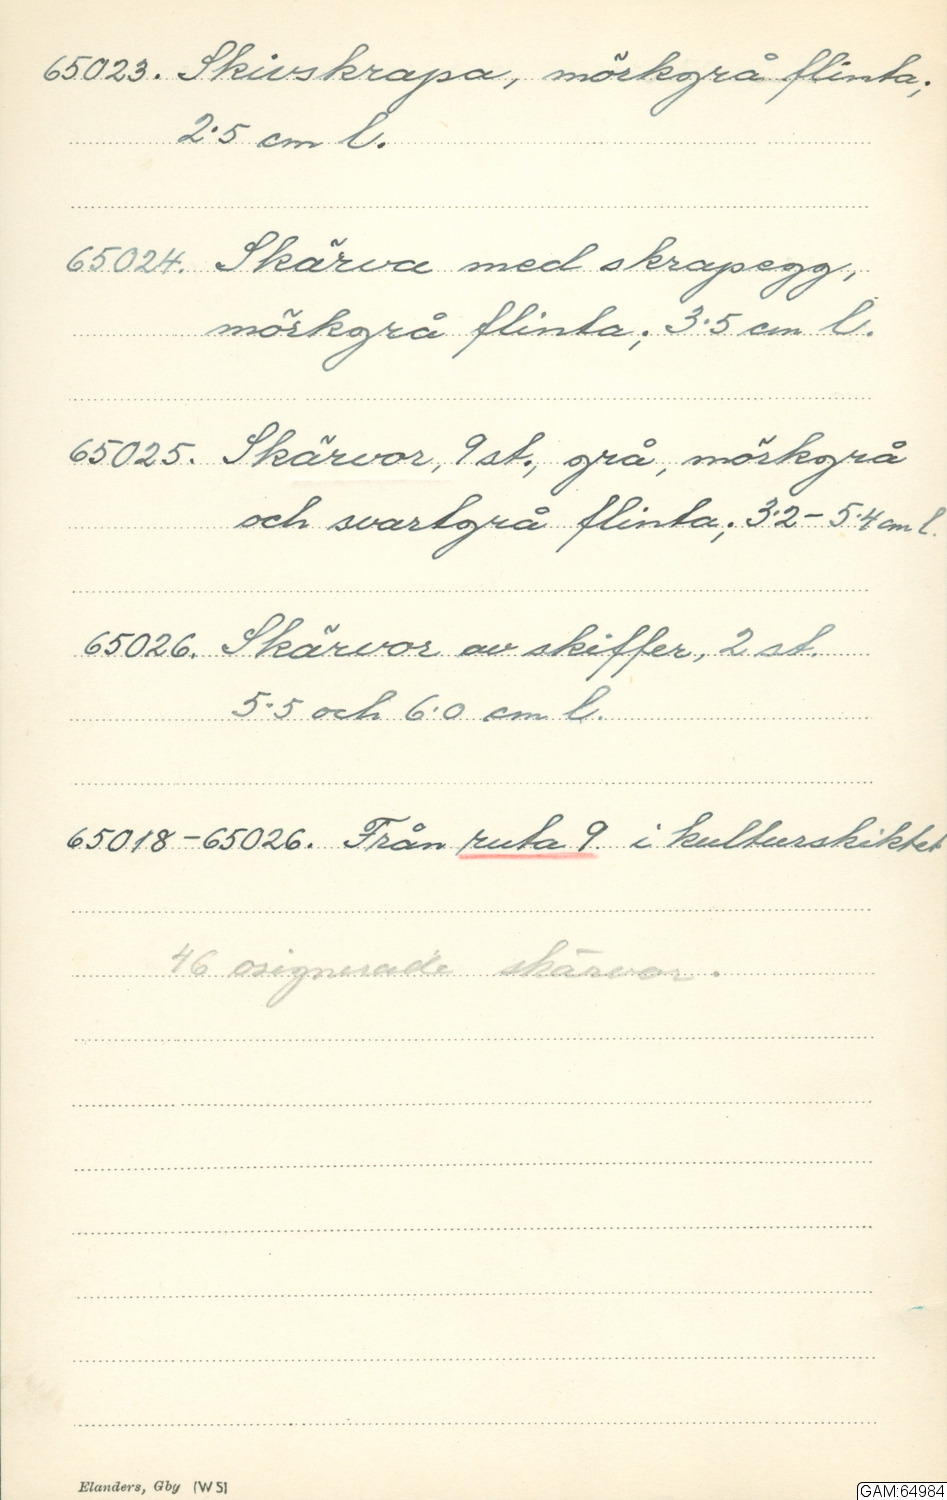 65023. Skivskrapa, mörkgrå flinta;
2.5 cm l.
65024. Skärva med skrapegg,
mörkgrå flinta; 3.5 cm l.
65025. Skärvor, 9 st., grå, mörkgrå
och svartgrå flinta; 3.2 - 5.4 cm l.
65026. Skärvor av skiffer, 2 st.
5.5 och 6.0 cm l.
65018-65026. Från ruta 9 i kulturskiktet
46 osignerade skärvor.
Elanders, Gby (W S)
GAM:64984